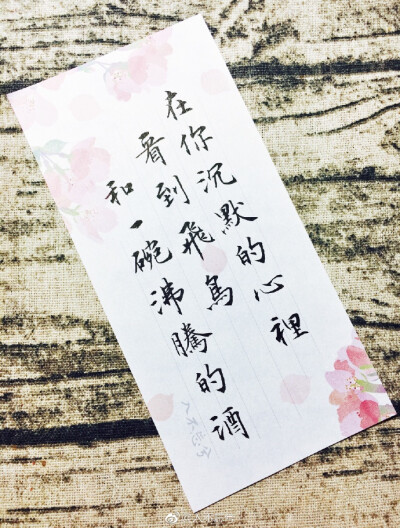 在你沉默的心裡
看到飛鳥
和一碗沸騰的酒